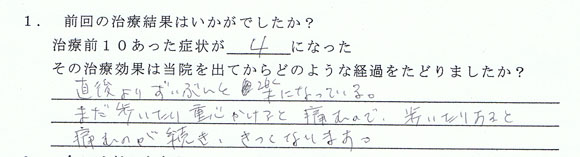 1. 前回の治療結果はいかがでしたか？
治療前10あった症状が 4 になった
その治療効果は当院を出てからどのような経過をたどりましたか？
直後よりずいぶんと楽になっている。
まだ歩いたり重心かけると痛むので、歩いたりすると
痛むのが続き、きつくなります。